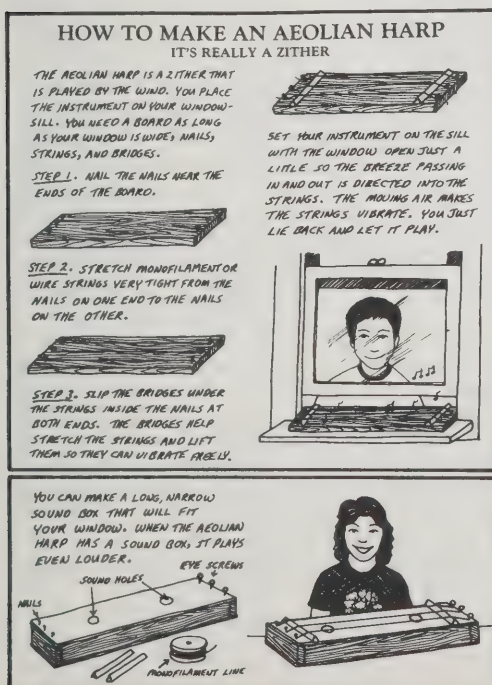 HOW TO MAKE AN AEOLIAN HARP
IT'S REALLY A ZITHER
THE AEOLIAN HARP IS A ZITHER THAT
IS PLAYED BY THE WIND. YOU PLACE
THE INSTRUMENT ON YOUR WINDOW-
SILL. YOU NEED A BOARD AS LONG
AS YOUR WINDOW IS WIDE, NAILS,
STRINGS, AND BRIDGES.
STEP 1. NAIL THE NAILS NEAR THE
ENDS OF THE BOARD.
STEP 2. STRETCH MONOFILAMENT OR
WIRE STRINGS VERY TIGHT FROM THE
NAILS ON ONE END TO THE NAILS
ON THE OTHER.
STEP 3. SLIP THE BRIDGES UNDER
THE STRINGS INSIDE THE NAILS AT
BOTH ENDS. THE BRIDGES HELP
STRETCH THE STRINGS AND LIFT
THEM SO THEY CAN VIBRATE FREELY.
SET YOUR INSTRUMENT ON THE SILL
WITH THE WINDOW OPEN JUST A
LITTLE SO THE BREEZE PASSING
IN AND OUT IS DIRECTED INTO THE
STRINGS. THE MOVING AIR MAKES
THE STRINGS VIBRATE. YOU JUST
LIE BACK AND LET IT PLAY.
YOU CAN MAKE A LONG, NARROW
SOUND BOX THAT WILL FIT
YOUR WINDOW. WHEN THE AEOLIAN
HARP HAS A SOUND BOX, IT PLAYS
EVEN LOUDER.
EYE SCREWS
SOUND HOLES
NAILS
MONOFILAMENT LINE